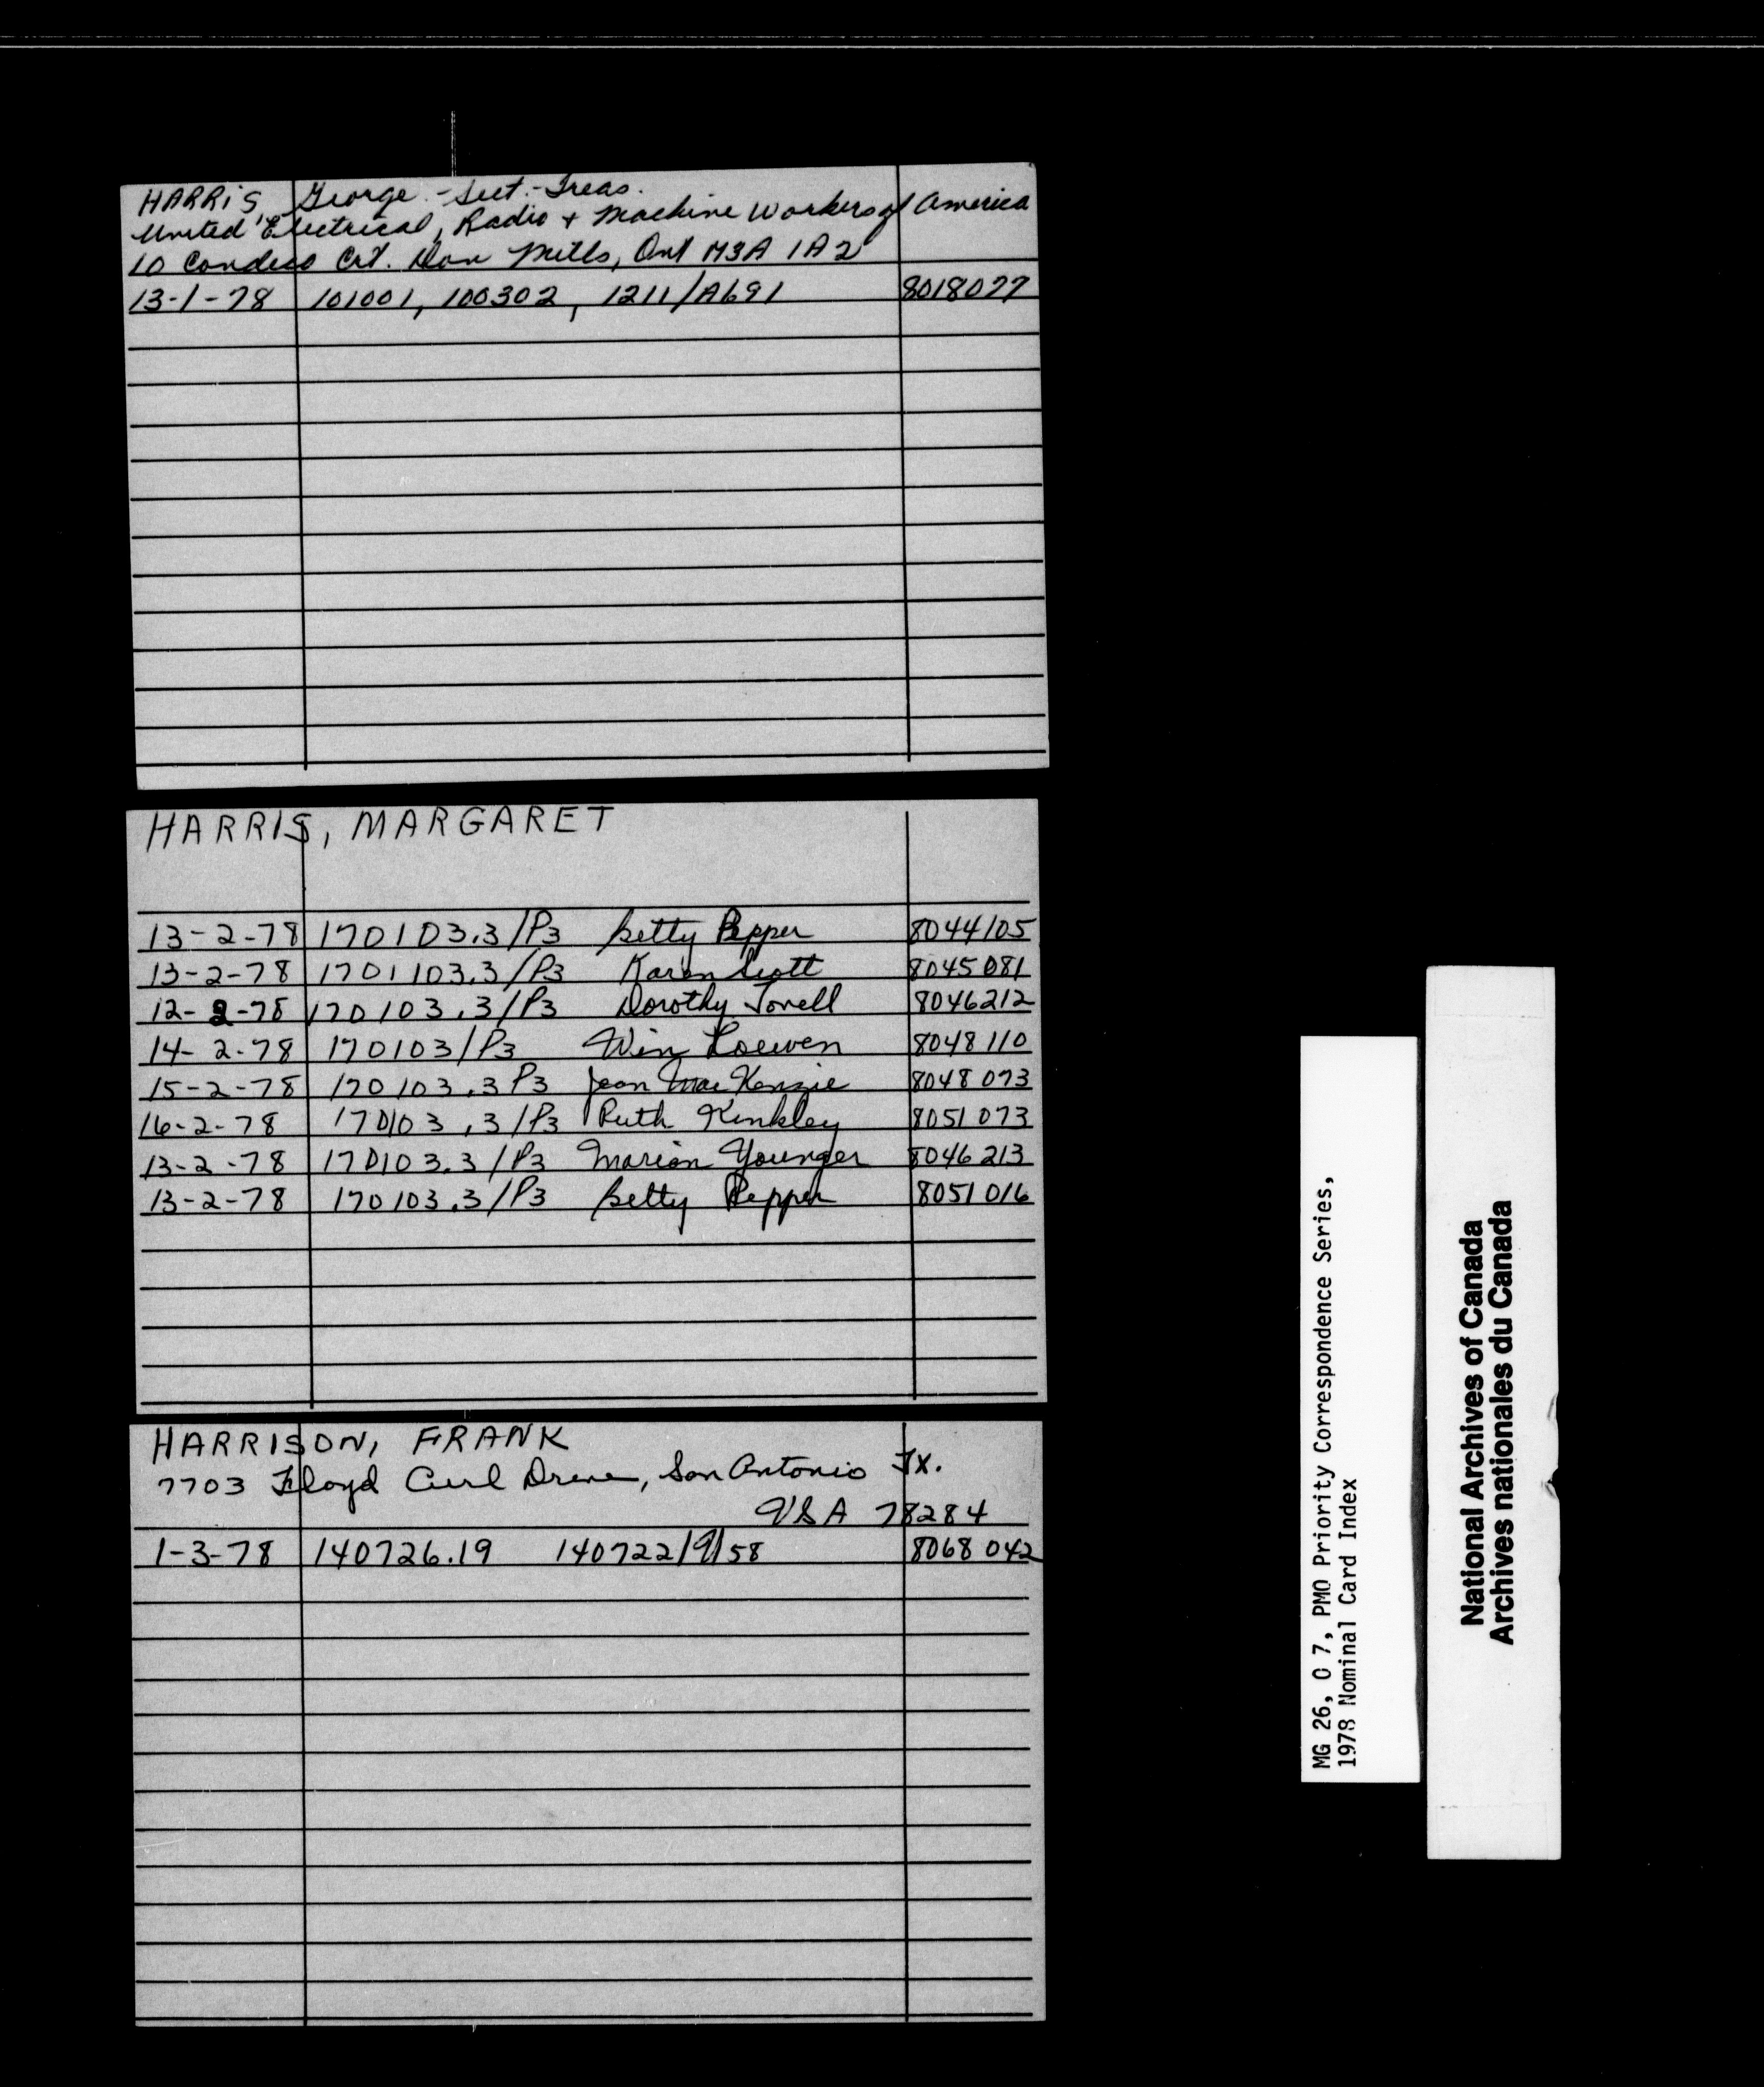 HARRIS, George - Sect.-Treas.
United Electrical, Radio + Machine Workers of America
10 Condeco Crt. Don Mills, Ont M3A 1A2
13-1-78 101001, 100302, 1211/A691 8018077
HARRIS, MARGARET
13-2-78 170103.3/P3 Betty Pepper 8044105
13-2-78 1701103.3/P3 Karen Scott 8045081
12-2-78 170103.3/P3 Dorothy 8046212
14-2-78 170103/P3 Win Loewen 8048110
15-2-78 170103.3 P3 Jean MacKenzie 8048073
16-2-78 170103.3/P3 Ruth Kinkley 8051073
13-2-78 170103.3/P3 Marion Younger 8046213
13-2-78 170103.3/P3 Betty Pepper 8051016
HARRISON, FRANK
7703 Floyd Curl Drive, San Antonio Tx.
USA 78284
1-3-78 140726.19 140722/9/58 8068042
MG 26, O 7, PMO Priority Correspondence Series,
1978 Nominal Card Index
National Archives of Canada
Archives nationales du Canada